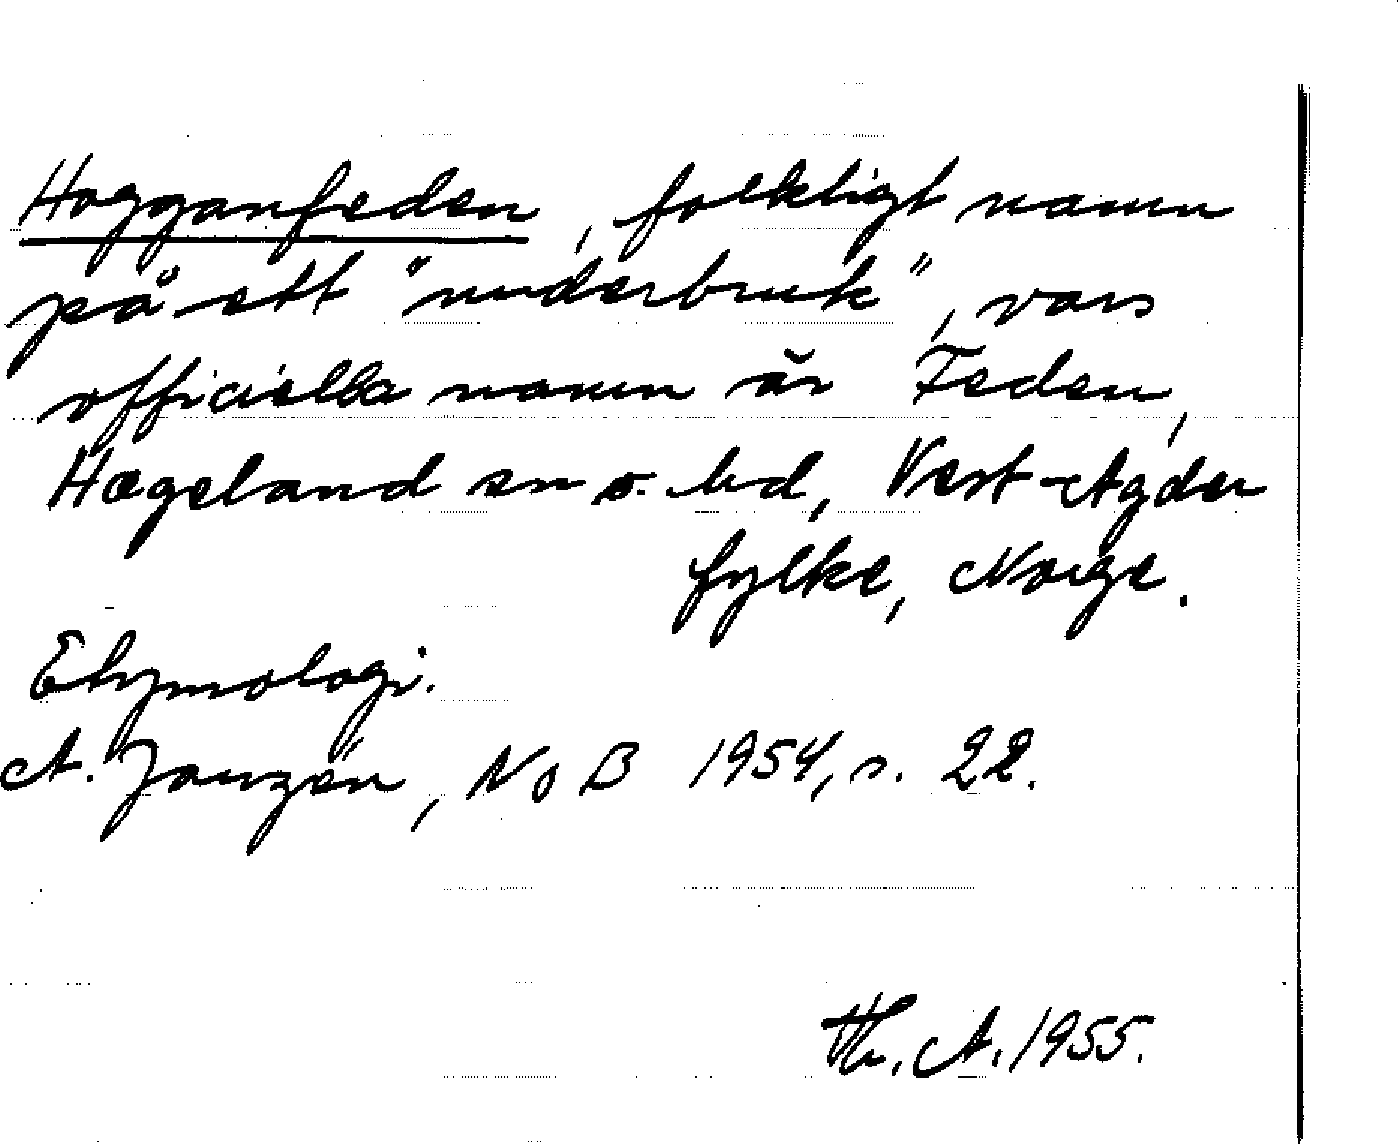 Hogganfeden, folkligt namn
på ett "underbruk", vars
officiella namn är Feden,
Hægeland sn o. hd, Vest-Agder
fylke, Norge.
Etymologi.
A. Janzén, NoB 1954, s. 22.
Th. A. 1955.